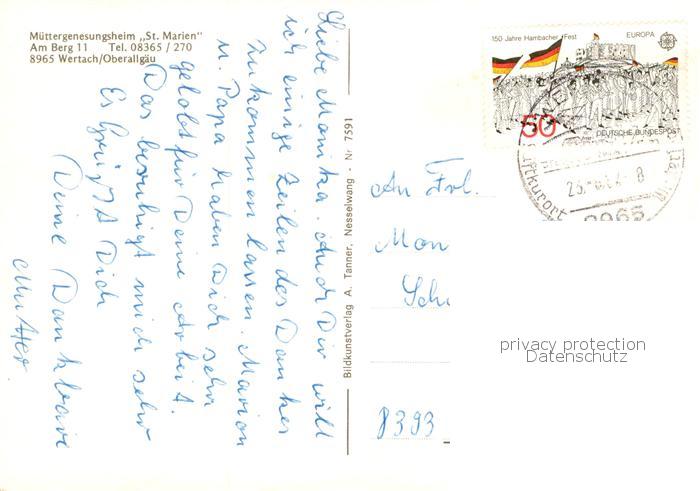 Müttergenesungsheim „St. Marien"
Am Berg 11 Tel. 08365 / 270
8965 Wertach/Oberallgäu
Liebe Monika. Auch Dir will
ich einige Zeilen des Dankes
zukommen lassen. Marion
u. Papa haben Dich sehr
gelobt für Deine Arbeit.
Das beruhigt mich sehr
Es Grüßt Dich
Deine Dankbare
Mutter
Bildkunstverlag A. Tanner, Nesselwang - Nr. 7591
150 Jahre Hambacher Fest
EUROPA
50
DEUTSCHE BUNDESPOST
Luftkurort
8965
An Frl.
Mon
Sch
privacy protection
Datenschutz
8393